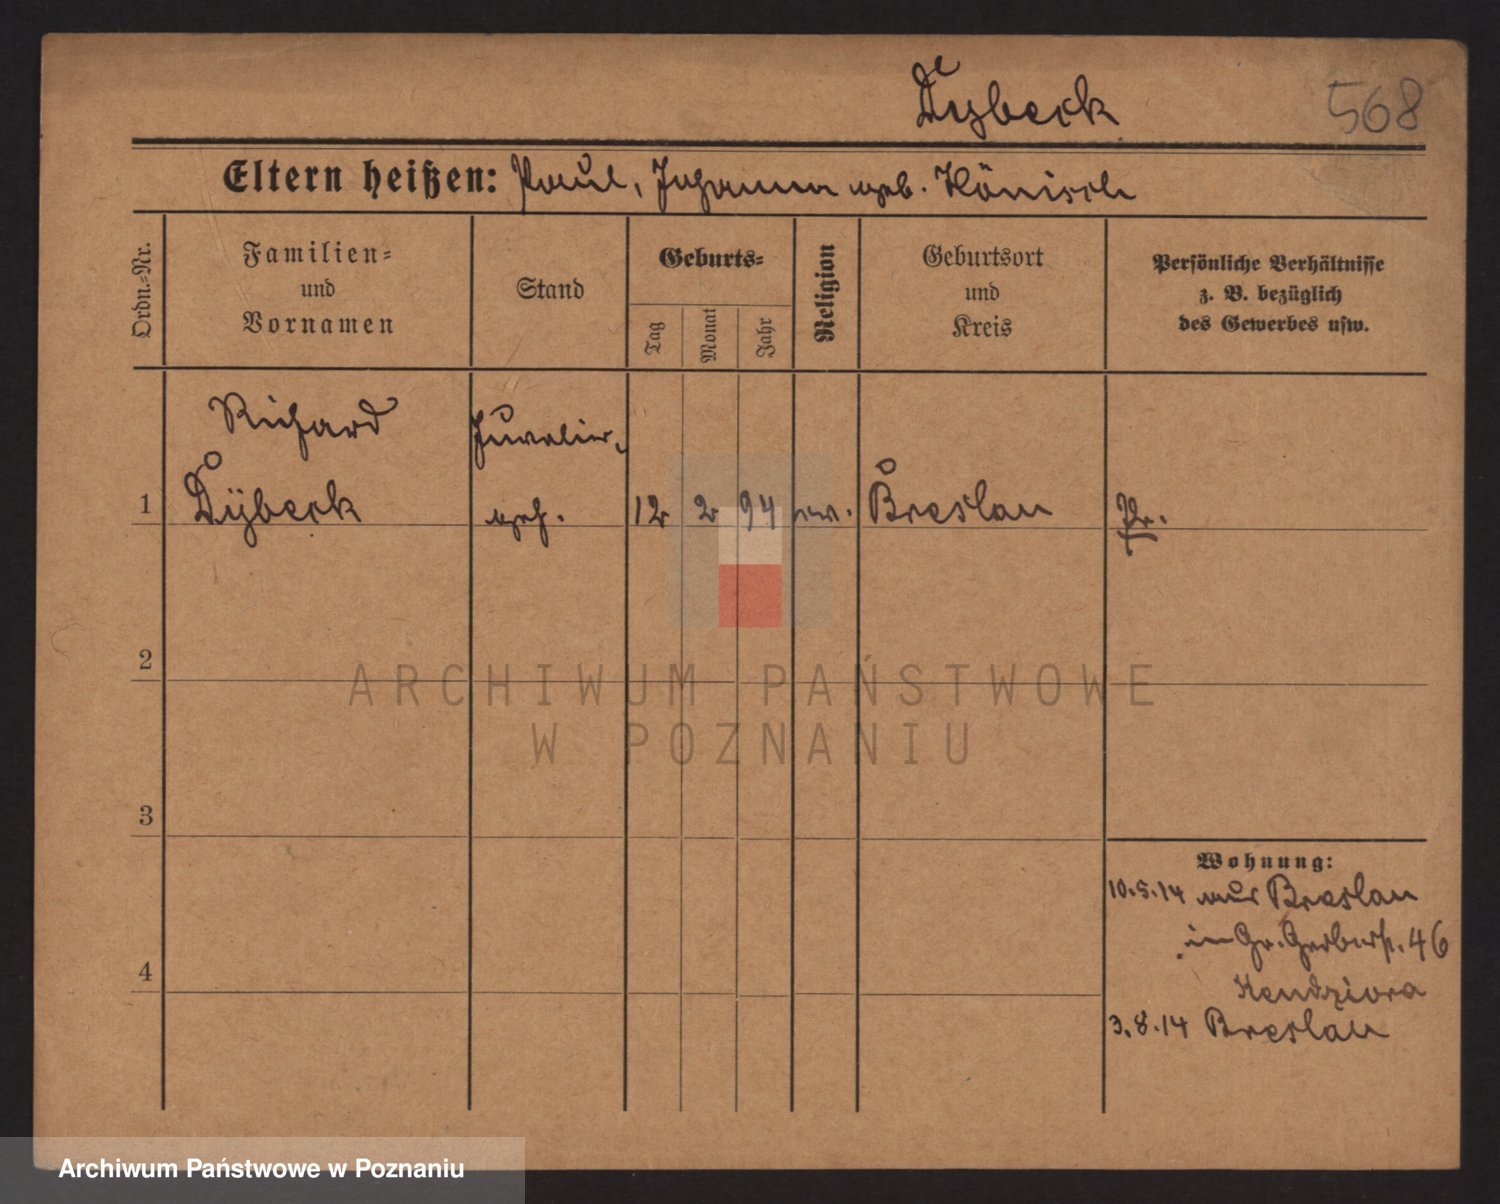 Dybeck
568
Eltern heißen: Paul, Johanna geb. Hönisch
Ordn.=Nr.
Familien=
und
Vornamen
Stand
Geburts=
Tag
Monat
Jahr
Religion
Geburtsort
und
Kreis
Persönliche Verhältnisse
z. B. bezüglich
des Gewerbes usw.
Richard
Juwelier
1 Dÿbeck geh. 12 2 94 ev. Breslau Pr.
2
3
4
Wohnung:
10.5.14 aus Breslau
in Gr. Gerberst. 46
Kendziora
3.8.14 Breslau
ARCHIWUM PAŃSTWOWE
W POZNANIU
Archiwum Państwowe w Poznaniu